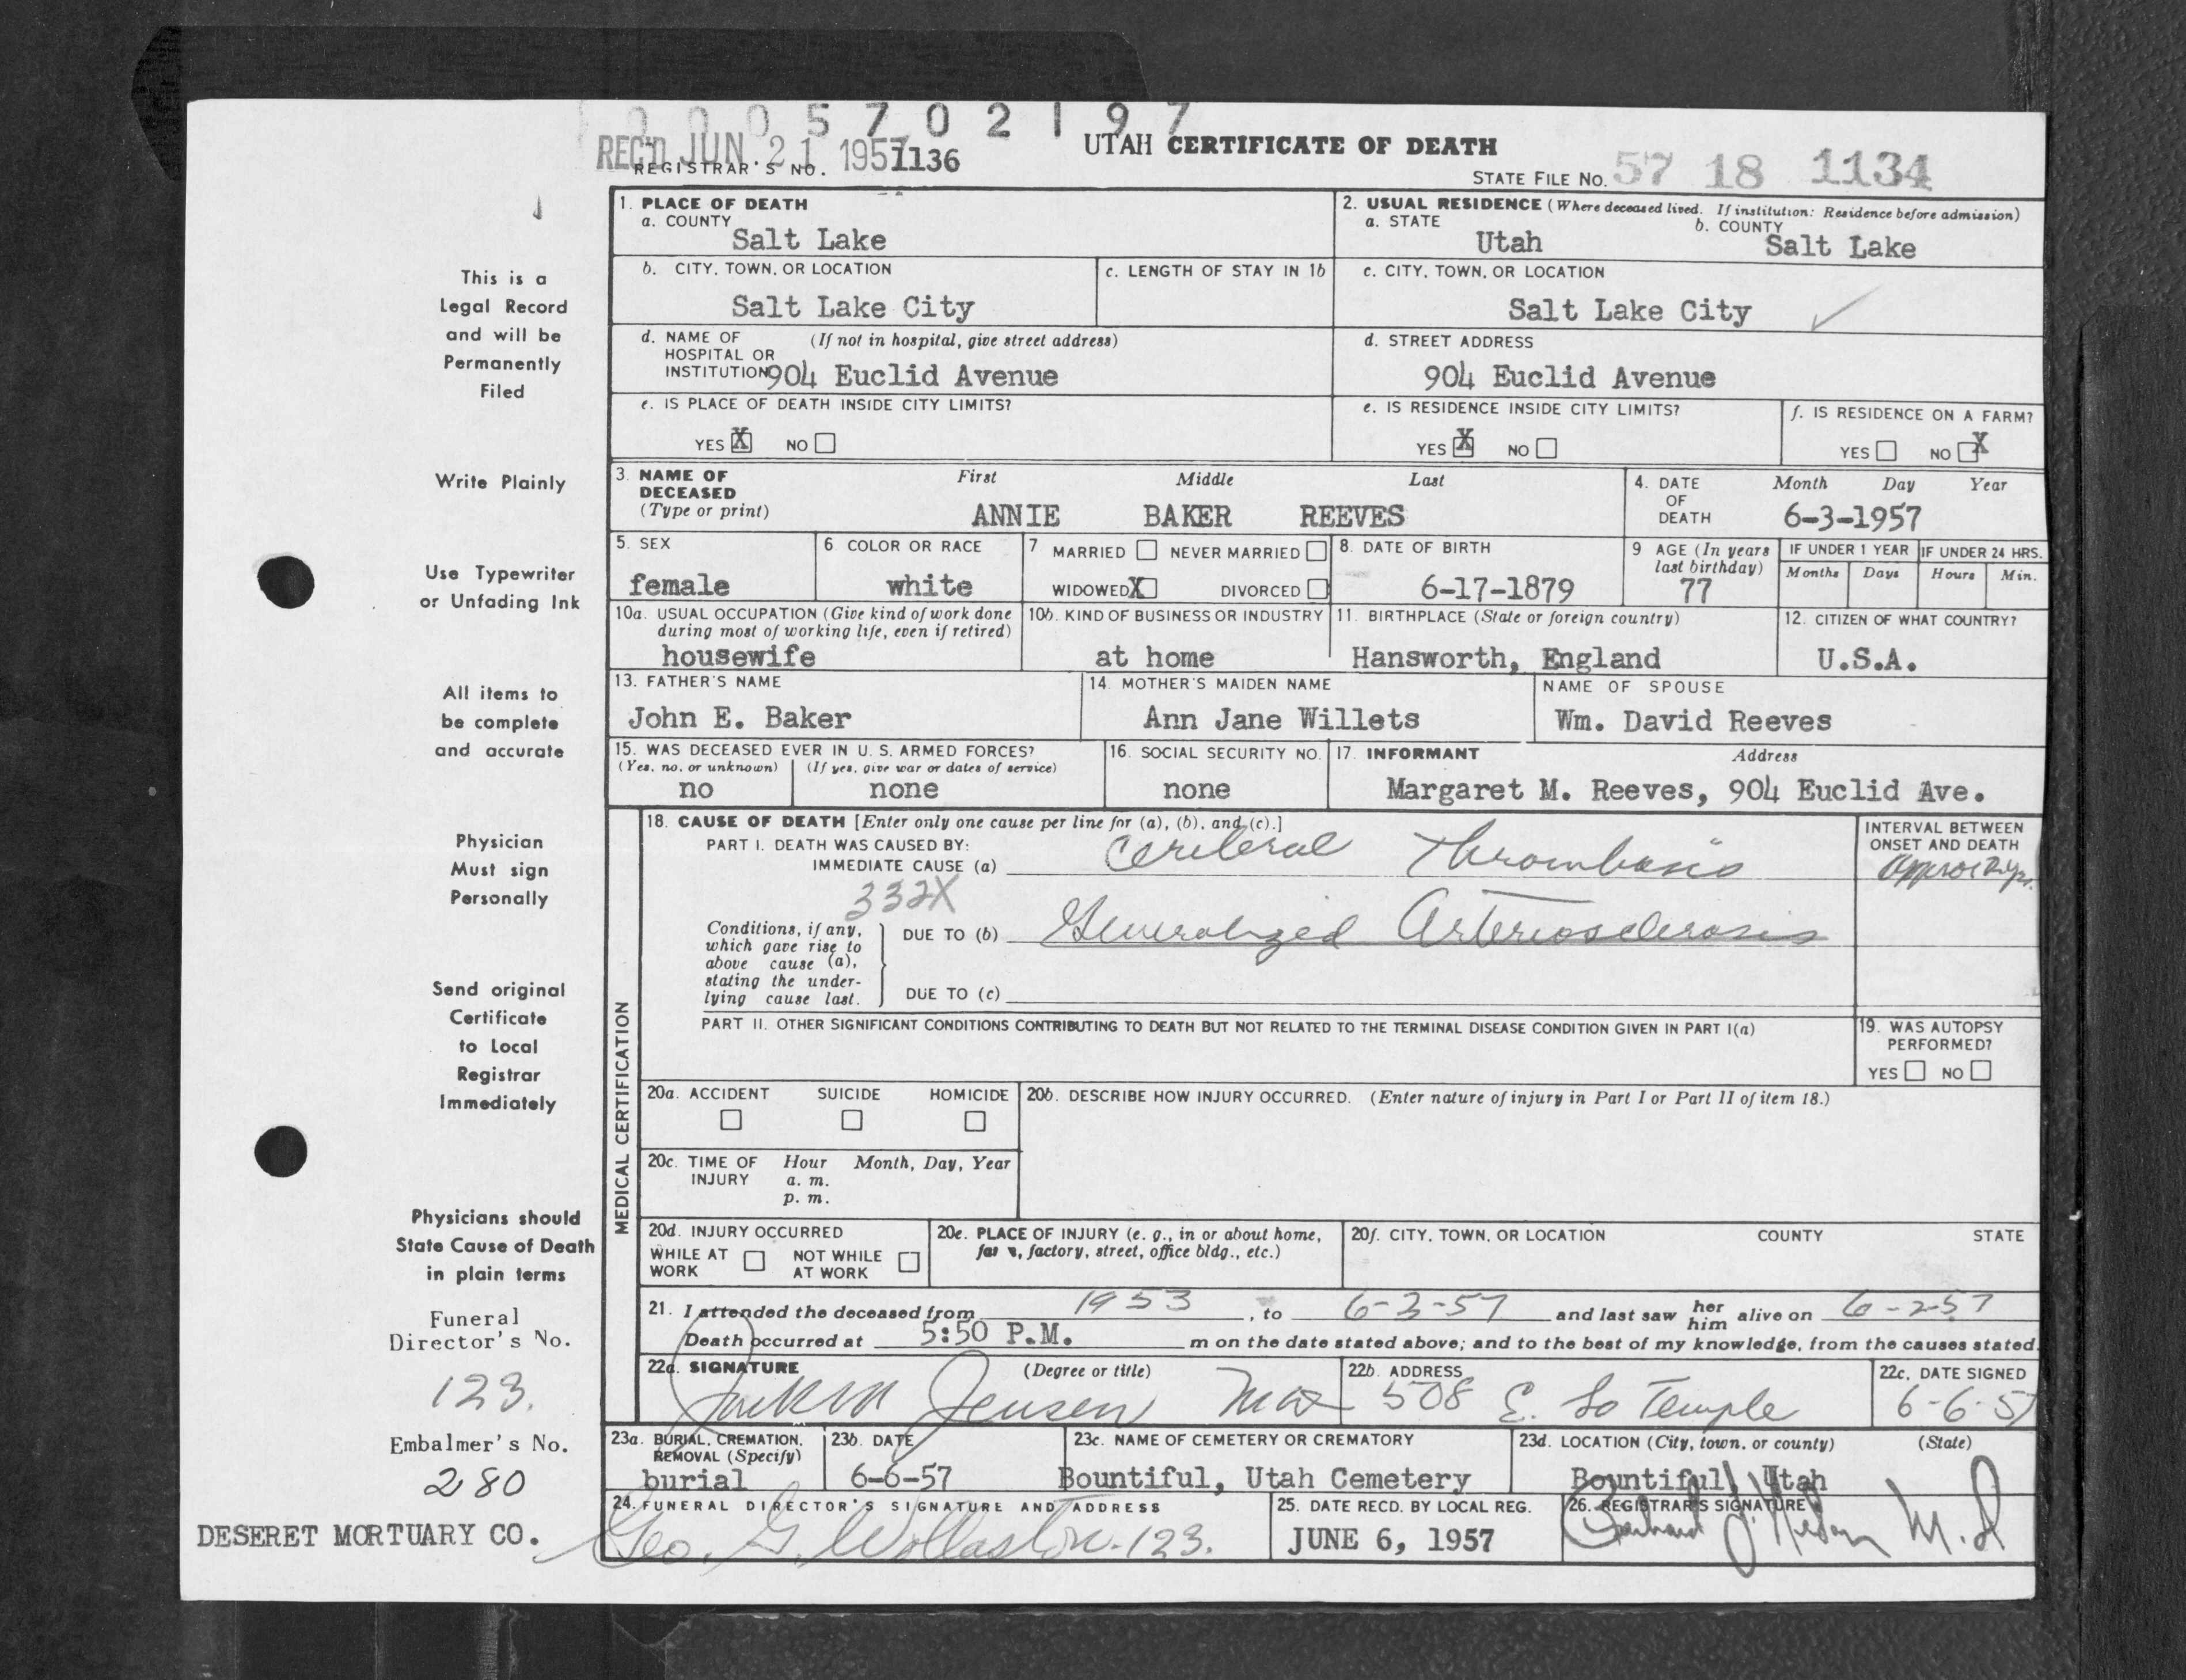 0005702197
REC'D JUN 21 1957
REGISTRAR'S NO. 1136
UTAH CERTIFICATE OF DEATH
STATE FILE NO. 57 18 1134
1. PLACE OF DEATH
a. COUNTY
Salt Lake
2. USUAL RESIDENCE (Where deceased lived. If institution: Residence before admission)
a. STATE
Utah
b. COUNTY
Salt Lake
b. CITY, TOWN, OR LOCATION
Salt Lake City
c. LENGTH OF STAY IN 1b
c. CITY, TOWN, OR LOCATION
Salt Lake City
d. NAME OF HOSPITAL OR INSTITUTION
(If not in hospital, give street address)
904 Euclid Avenue
d. STREET ADDRESS
904 Euclid Avenue
e. IS PLACE OF DEATH INSIDE CITY LIMITS?
YES X NO
e. IS RESIDENCE INSIDE CITY LIMITS?
YES X NO
f. IS RESIDENCE ON A FARM?
YES NO X
3. NAME OF DECEASED
(Type or print)
First Middle Last
ANNIE BAKER REEVES
4. DATE OF DEATH
Month Day Year
6-3-1957
5. SEX
female
6 COLOR OR RACE
white
7 MARRIED NEVER MARRIED
WIDOWED X DIVORCED
8. DATE OF BIRTH
6-17-1879
9 AGE (In years last birthday)
77
IF UNDER 1 YEAR
Months Days
IF UNDER 24 HRS.
Hours Min.
10a. USUAL OCCUPATION (Give kind of work done during most of working life, even if retired)
housewife
10b. KIND OF BUSINESS OR INDUSTRY
at home
11. BIRTHPLACE (State or foreign country)
Hansworth, England
12. CITIZEN OF WHAT COUNTRY?
U.S.A.
13. FATHER'S NAME
John E. Baker
14. MOTHER'S MAIDEN NAME
Ann Jane Willets
NAME OF SPOUSE
Wm. David Reeves
15. WAS DECEASED EVER IN U. S. ARMED FORCES?
(Yes, no, or unknown) (If yes, give war or dates of service)
no none
16. SOCIAL SECURITY NO.
none
17. INFORMANT Address
Margaret M. Reeves, 904 Euclid Ave.
MEDICAL CERTIFICATION
18. CAUSE OF DEATH [Enter only one cause per line for (a), (b), and (c).]
PART I. DEATH WAS CAUSED BY:
IMMEDIATE CAUSE (a) Cerebral Thrombosis
INTERVAL BETWEEN ONSET AND DEATH
332X
Conditions, if any, which gave rise to above cause (a), stating the underlying cause last.
DUE TO (b) Generalized Arteriosclerosis
DUE TO (c)
PART II. OTHER SIGNIFICANT CONDITIONS CONTRIBUTING TO DEATH BUT NOT RELATED TO THE TERMINAL DISEASE CONDITION GIVEN IN PART I(a)
19. WAS AUTOPSY PERFORMED?
YES NO
20a. ACCIDENT SUICIDE HOMICIDE
20b. DESCRIBE HOW INJURY OCCURRED. (Enter nature of injury in Part I or Part II of item 18.)
20c. TIME OF INJURY Hour Month, Day, Year
a. m.
p. m.
20d. INJURY OCCURRED
WHILE AT WORK NOT WHILE AT WORK
20e. PLACE OF INJURY (e. g., in or about home, factory, street, office bldg., etc.)
20f. CITY, TOWN, OR LOCATION COUNTY STATE
21. I attended the deceased from 1953, to 6-3-57 and last saw her him alive on 6-2-57
Death occurred at 5:50 P.M. m on the date stated above; and to the best of my knowledge, from the causes stated.
22a. SIGNATURE (Degree or title)
Jensen
22b. ADDRESS
508 E. So Temple
22c. DATE SIGNED
6-6-57
23a. BURIAL, CREMATION, REMOVAL (Specify)
burial
23b. DATE
6-6-57
23c. NAME OF CEMETERY OR CREMATORY
Bountiful, Utah Cemetery
23d. LOCATION (City, town, or county) (State)
Bountiful, Utah
24. FUNERAL DIRECTOR'S SIGNATURE AND ADDRESS
Geo. G. Wollaston - 123.
25. DATE RECD. BY LOCAL REG.
JUNE 6, 1957
26. REGISTRAR'S SIGNATURE
M.D
This is a
Legal Record
and will be
Permanently
Filed
Write Plainly
Use Typewriter
or Unfading Ink
All items to
be complete
and accurate
Physician
Must sign
Personally
Send original
Certificate
to Local
Registrar
Immediately
Physicians should
State Cause of Death
in plain terms
Funeral
Director's No.
123.
Embalmer's No.
280
DESERET MORTUARY CO.